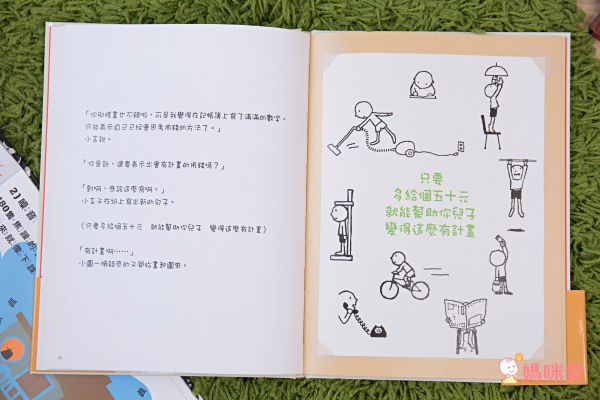 「你那樣畫也不錯啦，可是我覺得在記帳簿上寫了滿滿的數字，
只能表示自己已經會思考用錢的方法了。」
小言說。
「你是說，還要表示出會有計畫的用錢嗎？」
「對啊，應該這麼寫啊。」
小言又在紙上寫出新的句子。
（只要多給個五十元　就能幫助你兒子　變得這麼有計畫）
「有計畫啊……」
小圓一臉疑惑的又開始畫起圖來。
只要
多給個五十元
就能幫助你兒子
變得這麼有計畫
21噪音
媽咪愛